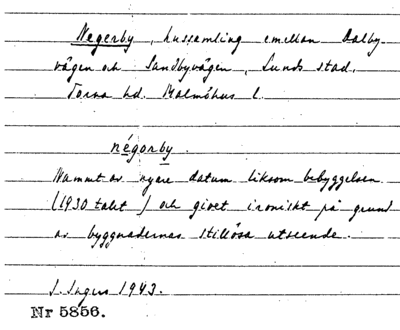 Negerby, hussamling emellan Dalby-
vägen och Sandbyvägen, Lunds stad,
Torna hd. Malmöhus l.
négorby.
Namnet av nyare datum liksom bebyggelsen
(1930 talet) och givet ironiskt på grund
av byggnadernas stillösa utseende.
1943.
Nr 5856.